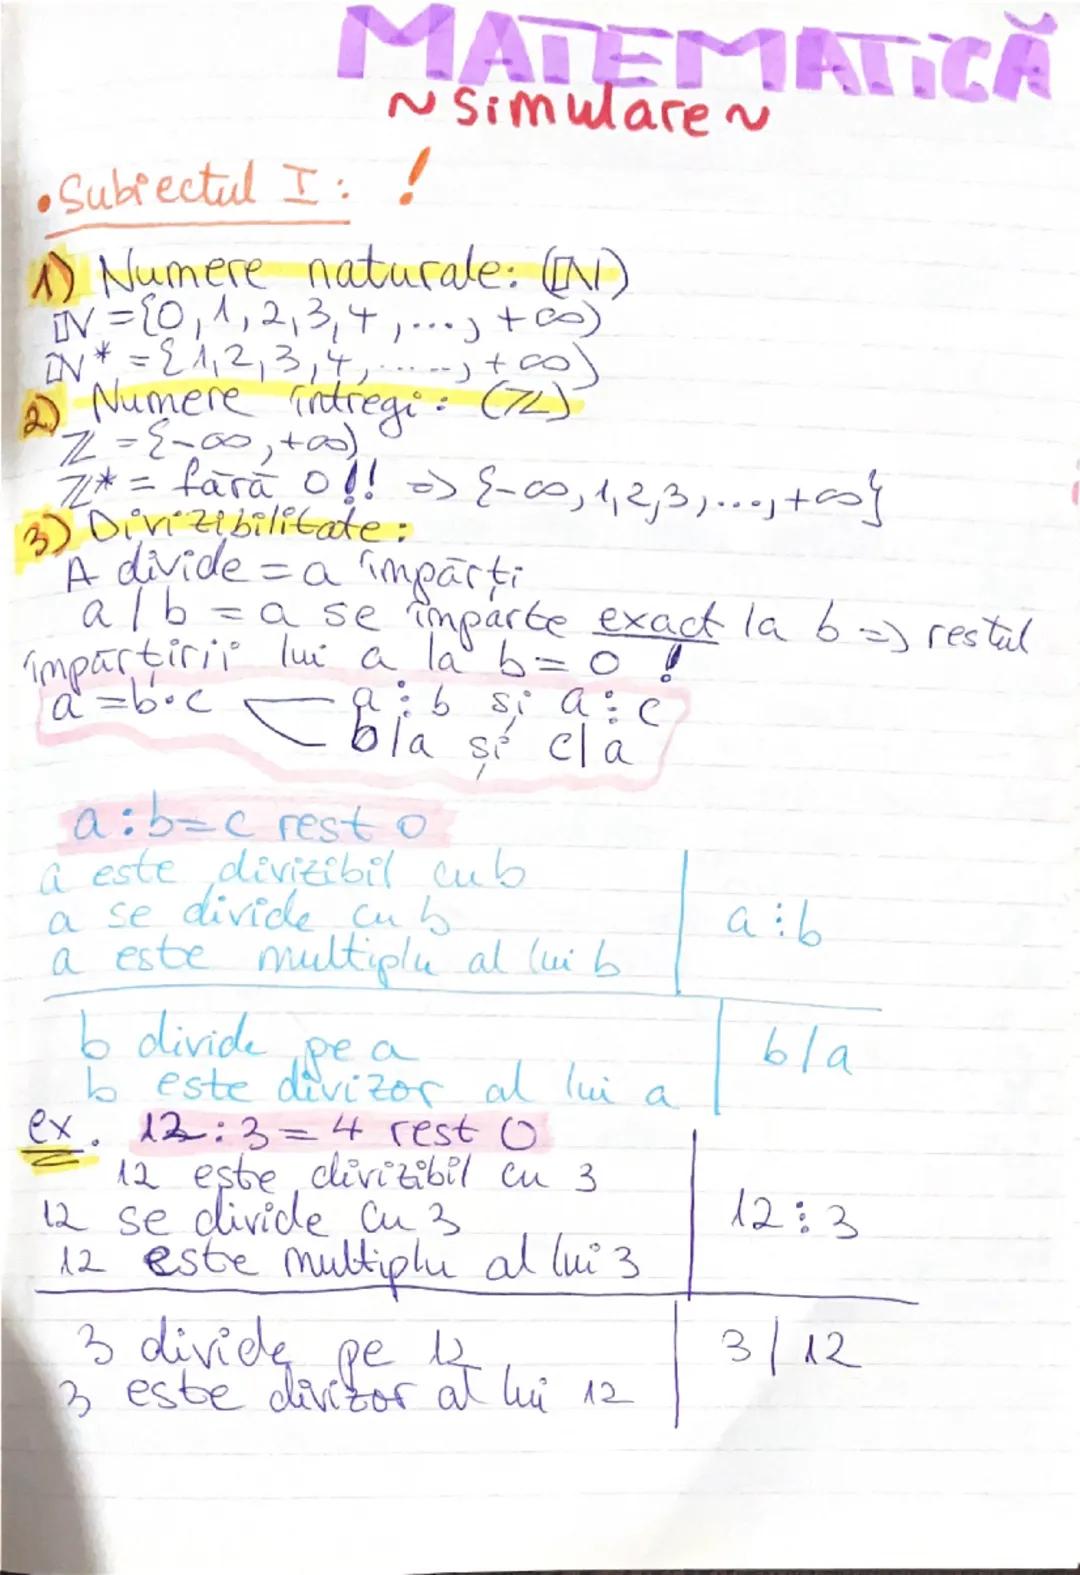 MATEMATICĂ
~ Simulare ~
• Subiectul I: !
1) Numere naturale: (ℕ)
ℕ = {0, 1, 2, 3, 4, ..., +∞)
ℕ* = {1, 2, 3, 4, ......, +∞)
2) Numere întregi: (ℤ)
ℤ = {-∞, +∞)
ℤ* = fără 0!! => {-∞, 1, 2, 3, ..., +∞}
3) Divizibilitate:
A divide = a împărți
a / b = a se împarte exact la b => restul
împărțirii lui a la b = 0 !
a = b·c a ⋮ b și a ⋮ c
b/a și c|a
a : b = c rest 0
a este divizibil cu b
a se divide cu b a ⋮ b
a este multiplu al lui b
b divide pe a b/a
b este divizor al lui a
ex. 12 : 3 = 4 rest 0
12 este divizibil cu 3
12 se divide cu 3 12 ⋮ 3
12 este multiplu al lui 3
3 divide pe 12 3 / 12
3 este divizor al lui 12